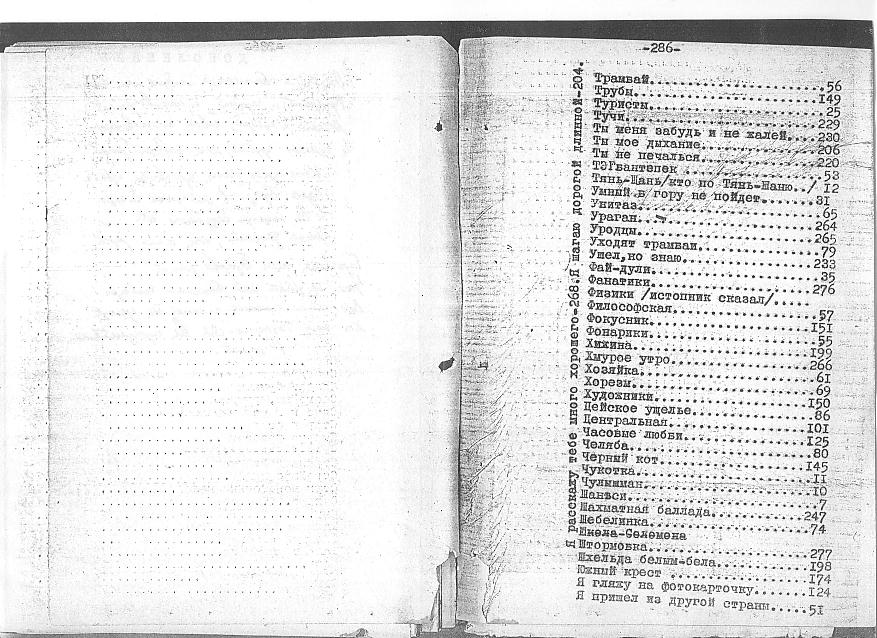 -286-
Трамвай........................56
Трубы........................I49
Туристы........................25
Тучи........................229
Ты меня забудь и не жалей....230
Ты мое дыхание................206
Ты не печалься................220
ТЭГбантепек ................53
Тянь-Шань/кто по Тянь-Шаню../ I2
Умный в гору не пойдет........31
Унитаз........................65
Ураган........................264
Уродцы........................265
Уходят трамваи................79
Ушел,но знаю................233
Фай-дули........................35
Фанатики........................276
Физики /истопник сказал/....
Философская....................57
Фокусник........................I51
Фонарики........................55
Хихина........................I99
Хмурое утро....................266
Хозяйка........................61
Хорезм........................69
Художники....................I50
Цейское ущелье................86
Центральная....................I0I
Часовые любви................I25
Челяба........................80
Черный кот....................I45
Чукотка........................II
Чулышман........................I0
Шанъси........................7
Шахматная баллада............247
Шебелинка....................74
Шкела-Селемена
Штормовка....................277
Шхельда белым-бела............I98
Южный крест ................I74
Я гляжу на фотокарточку......I24
Я пришел из другой страны....51
Я расскажу тебе много хорошего-268.Я шагаю дорогой длинной-204.